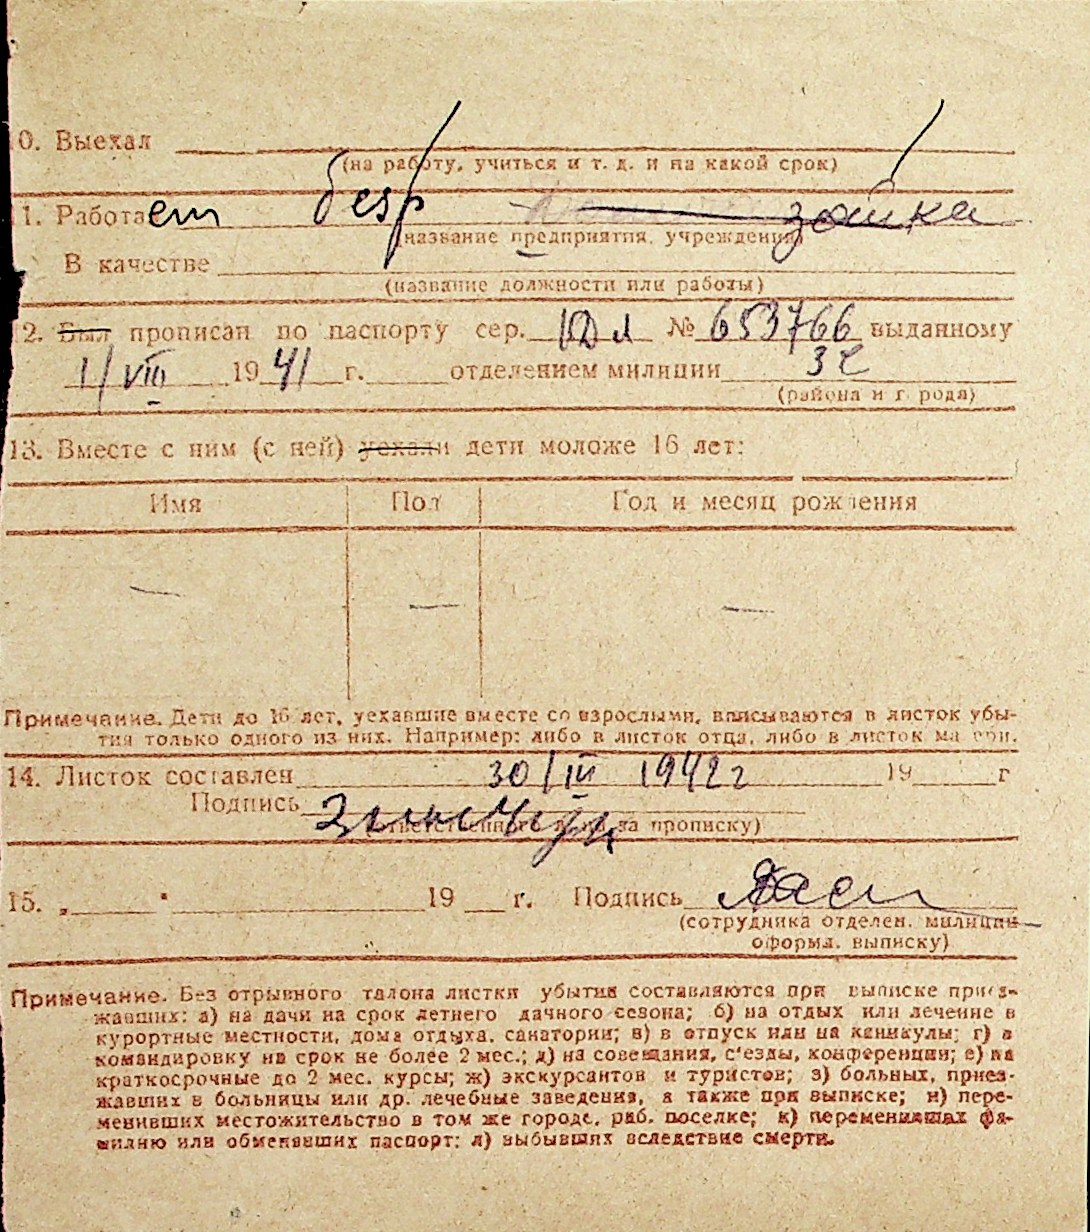 0. Выехал
(на работу, учиться и т. д. и на какой срок)
1. Работает
(название предприятия, учреждения)
В качестве
(название должности или работы)
2. Был прописан по паспорту сер. № 653766 выданному
1/VIII 1941 г. отделением милиции
(района и города)
13. Вместе с ним (с ней) уехали дети моложе 16 лет:
Имя Пол Год и месяц рождения
— — —
Примечание. Дети до 16 лет, уехавшие вместе со взрослыми, вписываются в листок убы-
тия только одного из них. Например: либо в листок отца, либо в листок матери.
14. Листок составлен 30/III 1942 г 19 г
Подпись
(ответственного лица за прописку)
15. „ " 19 г. Подпись
(сотрудника отделен. милиции
оформл. выписку)
Примечание. Без отрывного талона листки убытия составляются при выписке приез-
жавших: а) на дачи на срок летнего дачного сезона; б) на отдых или лечение в
курортные местности, дома отдыха, санатории; в) в отпуск или на каникулы; г) в
командировку на срок не более 2 мес.; д) на совещания, с'езды, конференции; е) на
краткосрочные до 2 мес. курсы; ж) экскурсантов и туристов; з) больных, приез-
жавших в больницы или др. лечебные заведения, а также при выписке; и) пере-
менивших местожительство в том же городе, раб. поселке; к) переменивших фа-
милию или обменявших паспорт; л) выбывших вследствие смерти.